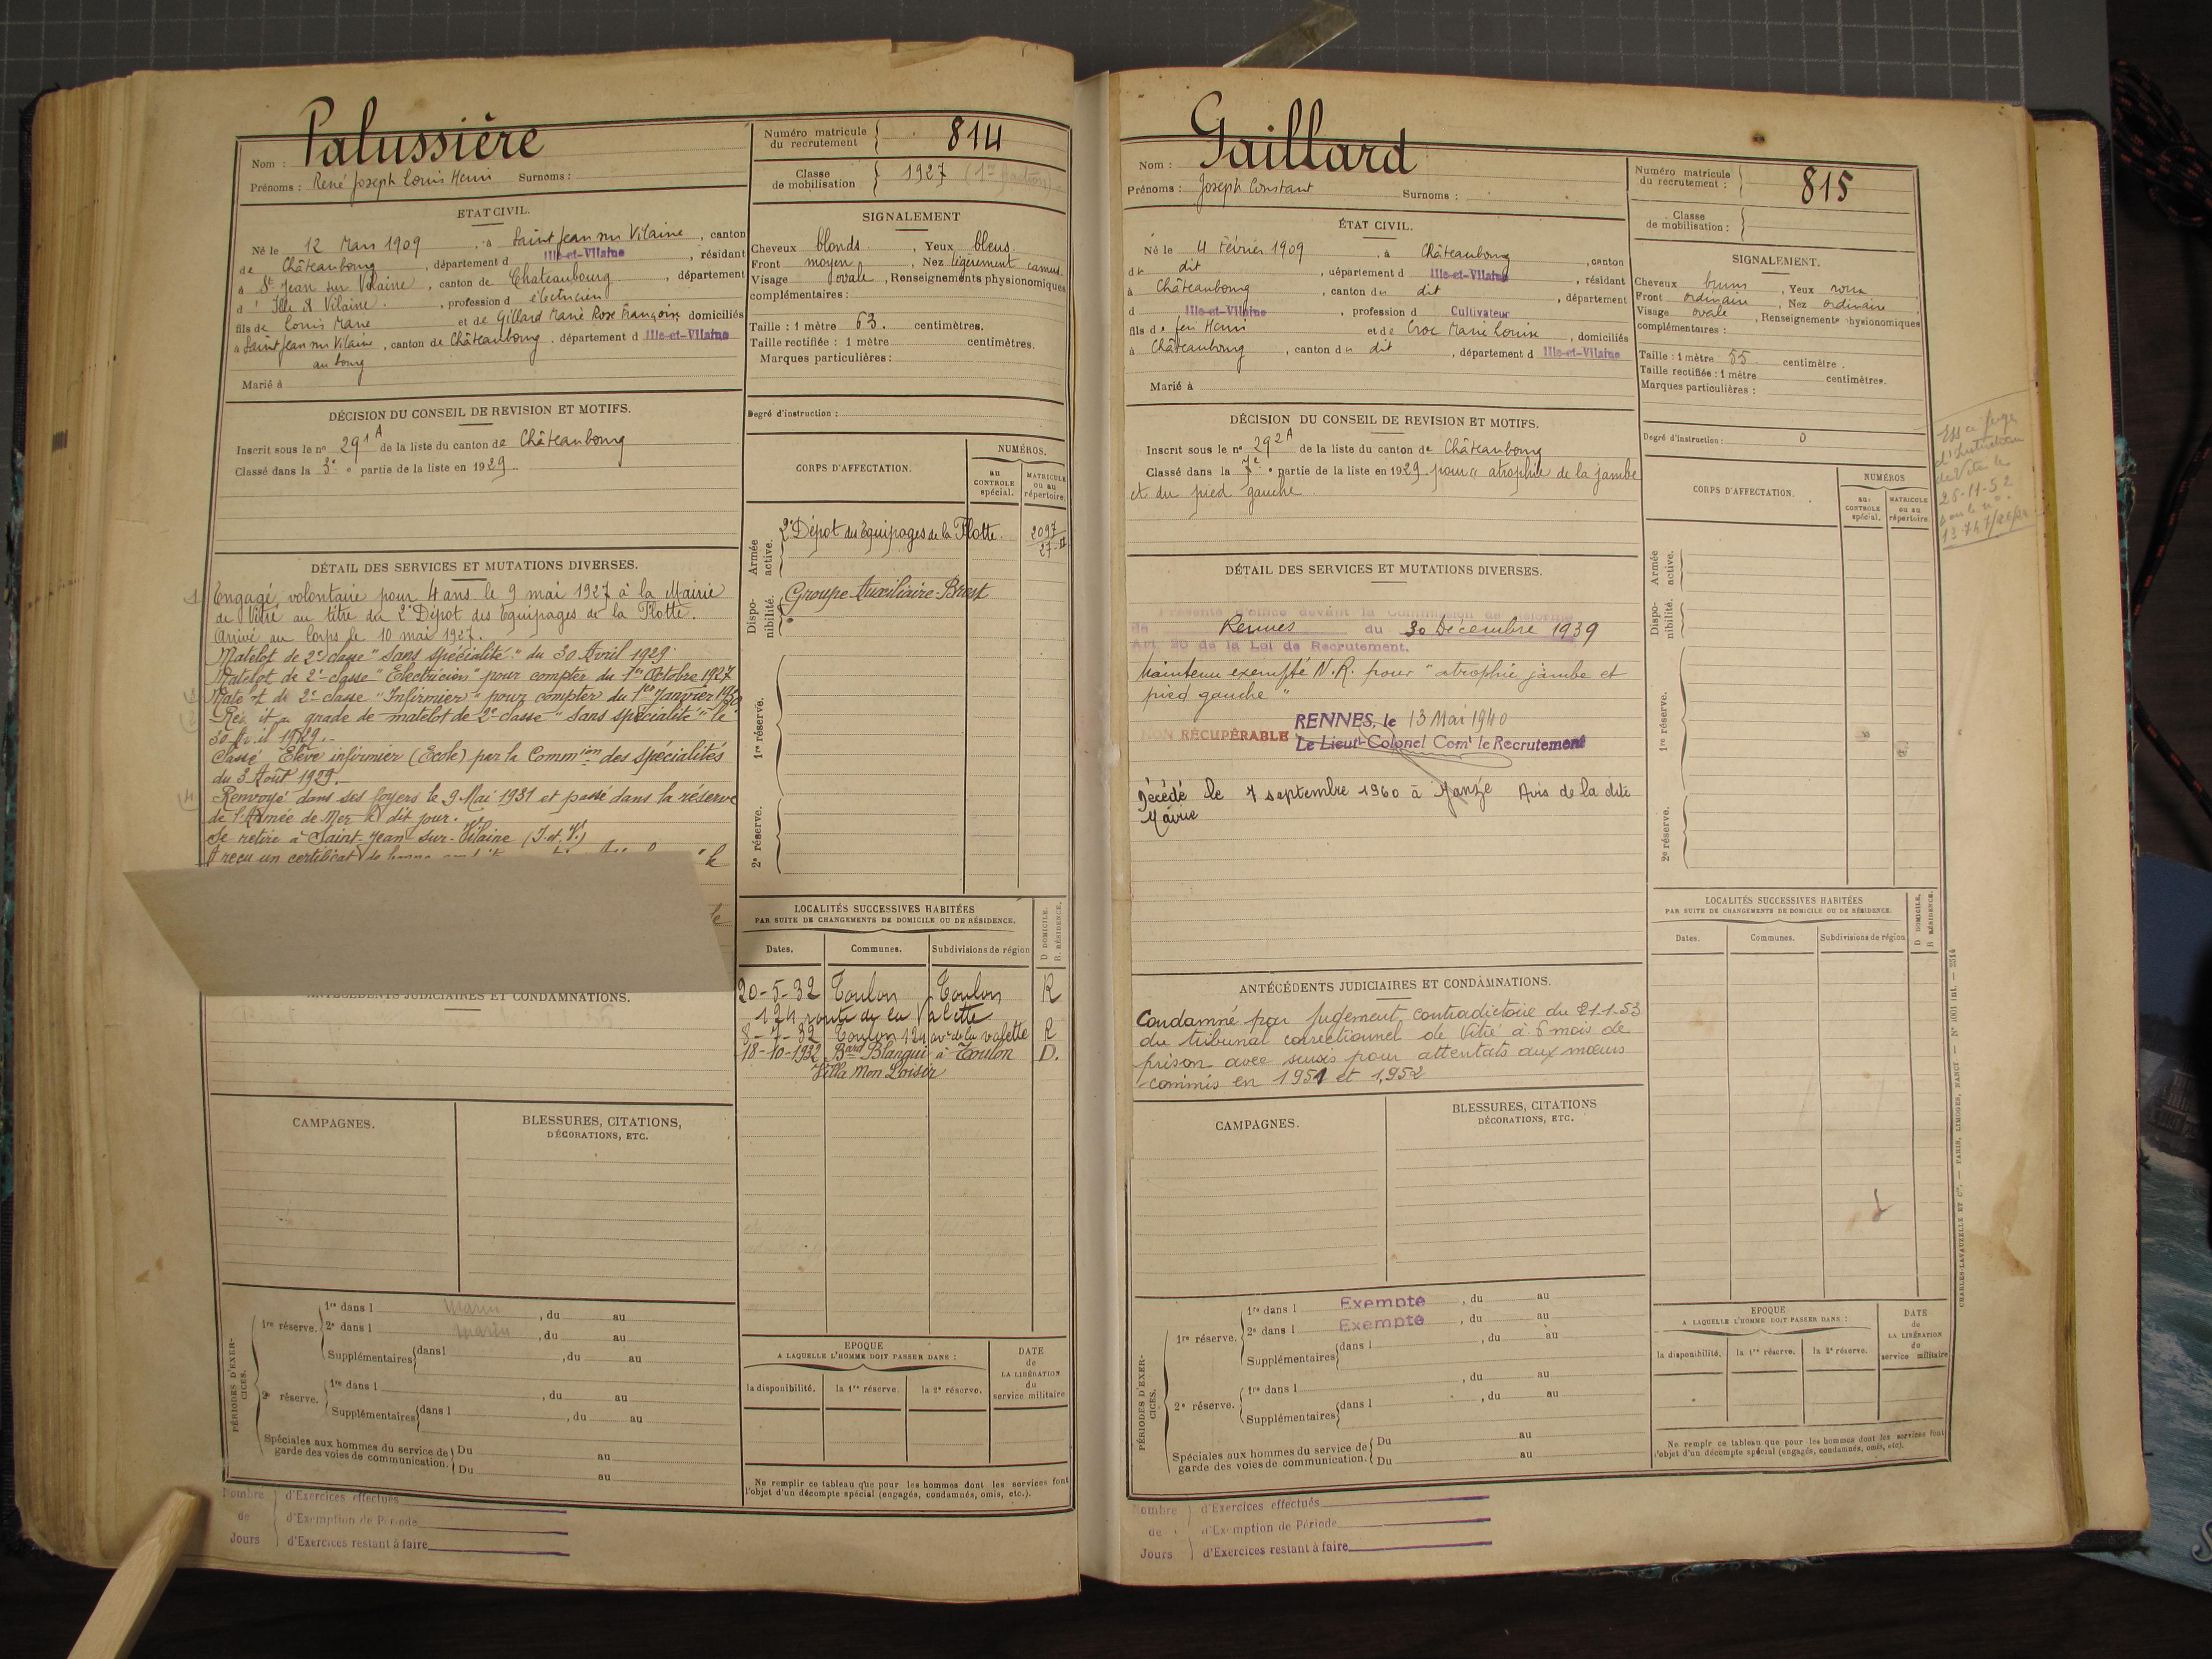 Palussière
Nom :
Prénoms : René Joseph Louis Henri Surnoms :
Numéro matricule du recrutement 814
Classe de mobilisation 1927
ETAT CIVIL.
Né le 12 Mars 1909, à Saint Jean sur Vilaine, canton
de Châteaubourg, département d Ille-et-Vilaine, résidant
à St Jean sur Vilaine, canton de Chateaubourg, département
d' Ille & Vilaine, profession d électricien
fils de Louis Marie et de Gillard Marie Rose Françoise domiciliés
à Saint Jean sur Vilaine, canton de Châteaubourg, département d Ille-et-Vilaine
au bourg
Marié à
SIGNALEMENT
Cheveux blonds, Yeux bleus
Front moyen, Nez légèrement camus
Visage ovale, Renseignements physionomiques
complémentaires :
Taille : 1 mètre 63. centimètres.
Taille rectifiée : 1 mètre centimètres.
Marques particulières :
Degré d'instruction :
DÉCISION DU CONSEIL DE REVISION ET MOTIFS.
Inscrit sous le no 291 A de la liste du canton de Châteaubourg
Classé dans la 3e partie de la liste en 1929
CORPS D'AFFECTATION.
NUMÉROS.
au CONTROLE spécial.
MATRICULE ou au répertoire.
Armée active.
2e Dépot des Equipages de la Flotte.
2097
27-II
Disponibilité.
Groupe Auxiliaire-Brest
1re réserve.
2e réserve.
DÉTAIL DES SERVICES ET MUTATIONS DIVERSES.
Engagé volontaire pour 4 ans le 9 mai 1927 à la Mairie
de Vitré au titre du 2e Dépot des Equipages de la Flotte.
Arrivé au Corps le 10 mai 1927.
Matelot de 2e classe "sans spécialité" du 30 Avril 1929.
Matelot de 2e classe "Electricien" pour compter du 1er Octobre 1927
de 2e classe "Infirmier" pour compter du 1er Janvier 1930
grade de matelot de 2e classe "sans spécialité" le
30 1929.
Classé Elève infirmier (Ecole) par la Commion des spécialités
du 3 Août 1929.
Renvoyé dans ses foyers le 9 Mai 1931 et passé dans la réserve
de l'Armée de Mer le dit jour.
Se retire à Saint-Jean-sur-Vilaine (I-et-V.)
A reçu un certificat de bonne
ANTÉCÉDENTS JUDICIAIRES ET CONDAMNATIONS.
LOCALITÉS SUCCESSIVES HABITÉES
PAR SUITE DE CHANGEMENTS DE DOMICILE OU DE RÉSIDENCE.
D DOMICILE.
R. RÉSIDENCE.
Dates. Communes. Subdivisions de région
20-5-32 Toulon Toulon R
124 route de la Valette
8-7-32 Toulon 124 av. de la valette R
18-10-1932 Bard Blanqui à Toulon D.
Villa Mon Loisir
CAMPAGNES.
BLESSURES, CITATIONS,
DÉCORATIONS, ETC.
PÉRIODES D'EXERCICES.
1re réserve.
1re dans l Marin, du au
2e dans l Marin, du au
Supplémentaires dans l, du au
2e réserve.
1re dans l, du au
Supplémentaires dans l, du au
Spéciales aux hommes du service de garde des voies de communication.
Du au
Du au
EPOQUE
A LAQUELLE L'HOMME DOIT PASSER DANS :
la disponibilité. la 1re réserve. la 2e réserve.
DATE de LA LIBÉRATION du service militaire
Ne remplir ce tableau que pour les hommes dont les services font
l'objet d'un décompte spécial (engagés, condamnés, omis, etc.).
Nombre de Jours
d'Exercices effectués
d'Exemption de Période
d'Exercices restant à faire
Gaillard
Nom :
Prénoms : Joseph Constant Surnoms :
Numéro matricule du recrutement : 815
Classe de mobilisation :
ÉTAT CIVIL.
Né le 4 Février 1909, à Châteaubourg, canton
du dit, département d Ille-et-Vilaine, résidant
à Châteaubourg, canton du dit, département
d Ille-et-Vilaine, profession d Cultivateur
fils de feu Henri et de Croc Marie Louise, domiciliés
à Châteaubourg, canton du dit, département d Ille-et-Vilaine
Marié à
SIGNALEMENT.
Cheveux bruns, Yeux roux
Front ordinaire, Nez ordinaire
Visage ovale, Renseignements physionomiques
complémentaires :
Taille : 1 mètre 55 centimètre.
Taille rectifiée : 1 mètre centimètres.
Marques particulières :
Degré d'instruction : 0
DÉCISION DU CONSEIL DE REVISION ET MOTIFS.
Inscrit sous le no 292 A de la liste du canton de Châteaubourg
Classé dans la 7e partie de la liste en 1929 pour "atrophie de la jambe
et du pied gauche
CORPS D'AFFECTATION.
NUMÉROS
au CONTROLE spécial.
MATRICULE ou au répertoire.
Armée active.
Disponibilité.
1re réserve.
2e réserve.
d'Instruction
de Vitré le
28-11-52
DÉTAIL DES SERVICES ET MUTATIONS DIVERSES.
Présenté d'office devant la Commission de Réforme
de Rennes du 30 Décembre 1939
Art. 20 de la Loi de Recrutement.
Maintenu exempté N.R. pour "atrophie jambe et
pied gauche"
RENNES, le 13 Mai 1940
NON RÉCUPÉRABLE Le Lieut-Colonel Comt le Recrutement
Décédé le 7 septembre 1960 à Janzé Avis de la dite
Mairie
ANTÉCÉDENTS JUDICIAIRES ET CONDAMNATIONS.
Condamné par Jugement contradictoire du 21-1-53
du tribunal correctionnel de Vitré à 6 mois de
prison avec sursis pour attentats aux mœurs
commis en 1951 et 1952
LOCALITÉS SUCCESSIVES HABITÉES
PAR SUITE DE CHANGEMENTS DE DOMICILE OU DE RÉSIDENCE.
D DOMICILE.
R RÉSIDENCE.
Dates. Communes. Subdivisions de région
CAMPAGNES.
BLESSURES, CITATIONS
DÉCORATIONS, ETC.
PÉRIODES D'EXERCICES.
1re réserve.
1re dans l Exempté, du au
2e dans l Exempté, du au
Supplémentaires dans l, du au
2e réserve.
1re dans l, du au
Supplémentaires dans l, du au
Spéciales aux hommes du service de garde des voies de communication.
Du au
Du au
EPOQUE
A LAQUELLE L'HOMME DOIT PASSER DANS :
la disponibilité. la 1re réserve. la 2e réserve.
DATE de LA LIBÉRATION du service militaire
Ne remplr ce tableau que pour les hommes dont les services font
l'objet d'un décompte spécial (engagés, condamnés, omis, etc).
CHARLES-LAVAUZELLE ET Cie. — PARIS, LIMOGES, NANCY — No 1001 int. — 2514
Nombre de Jours
d'Exercices effectués
d'Exemption de Période
d'Exercices restant à faire